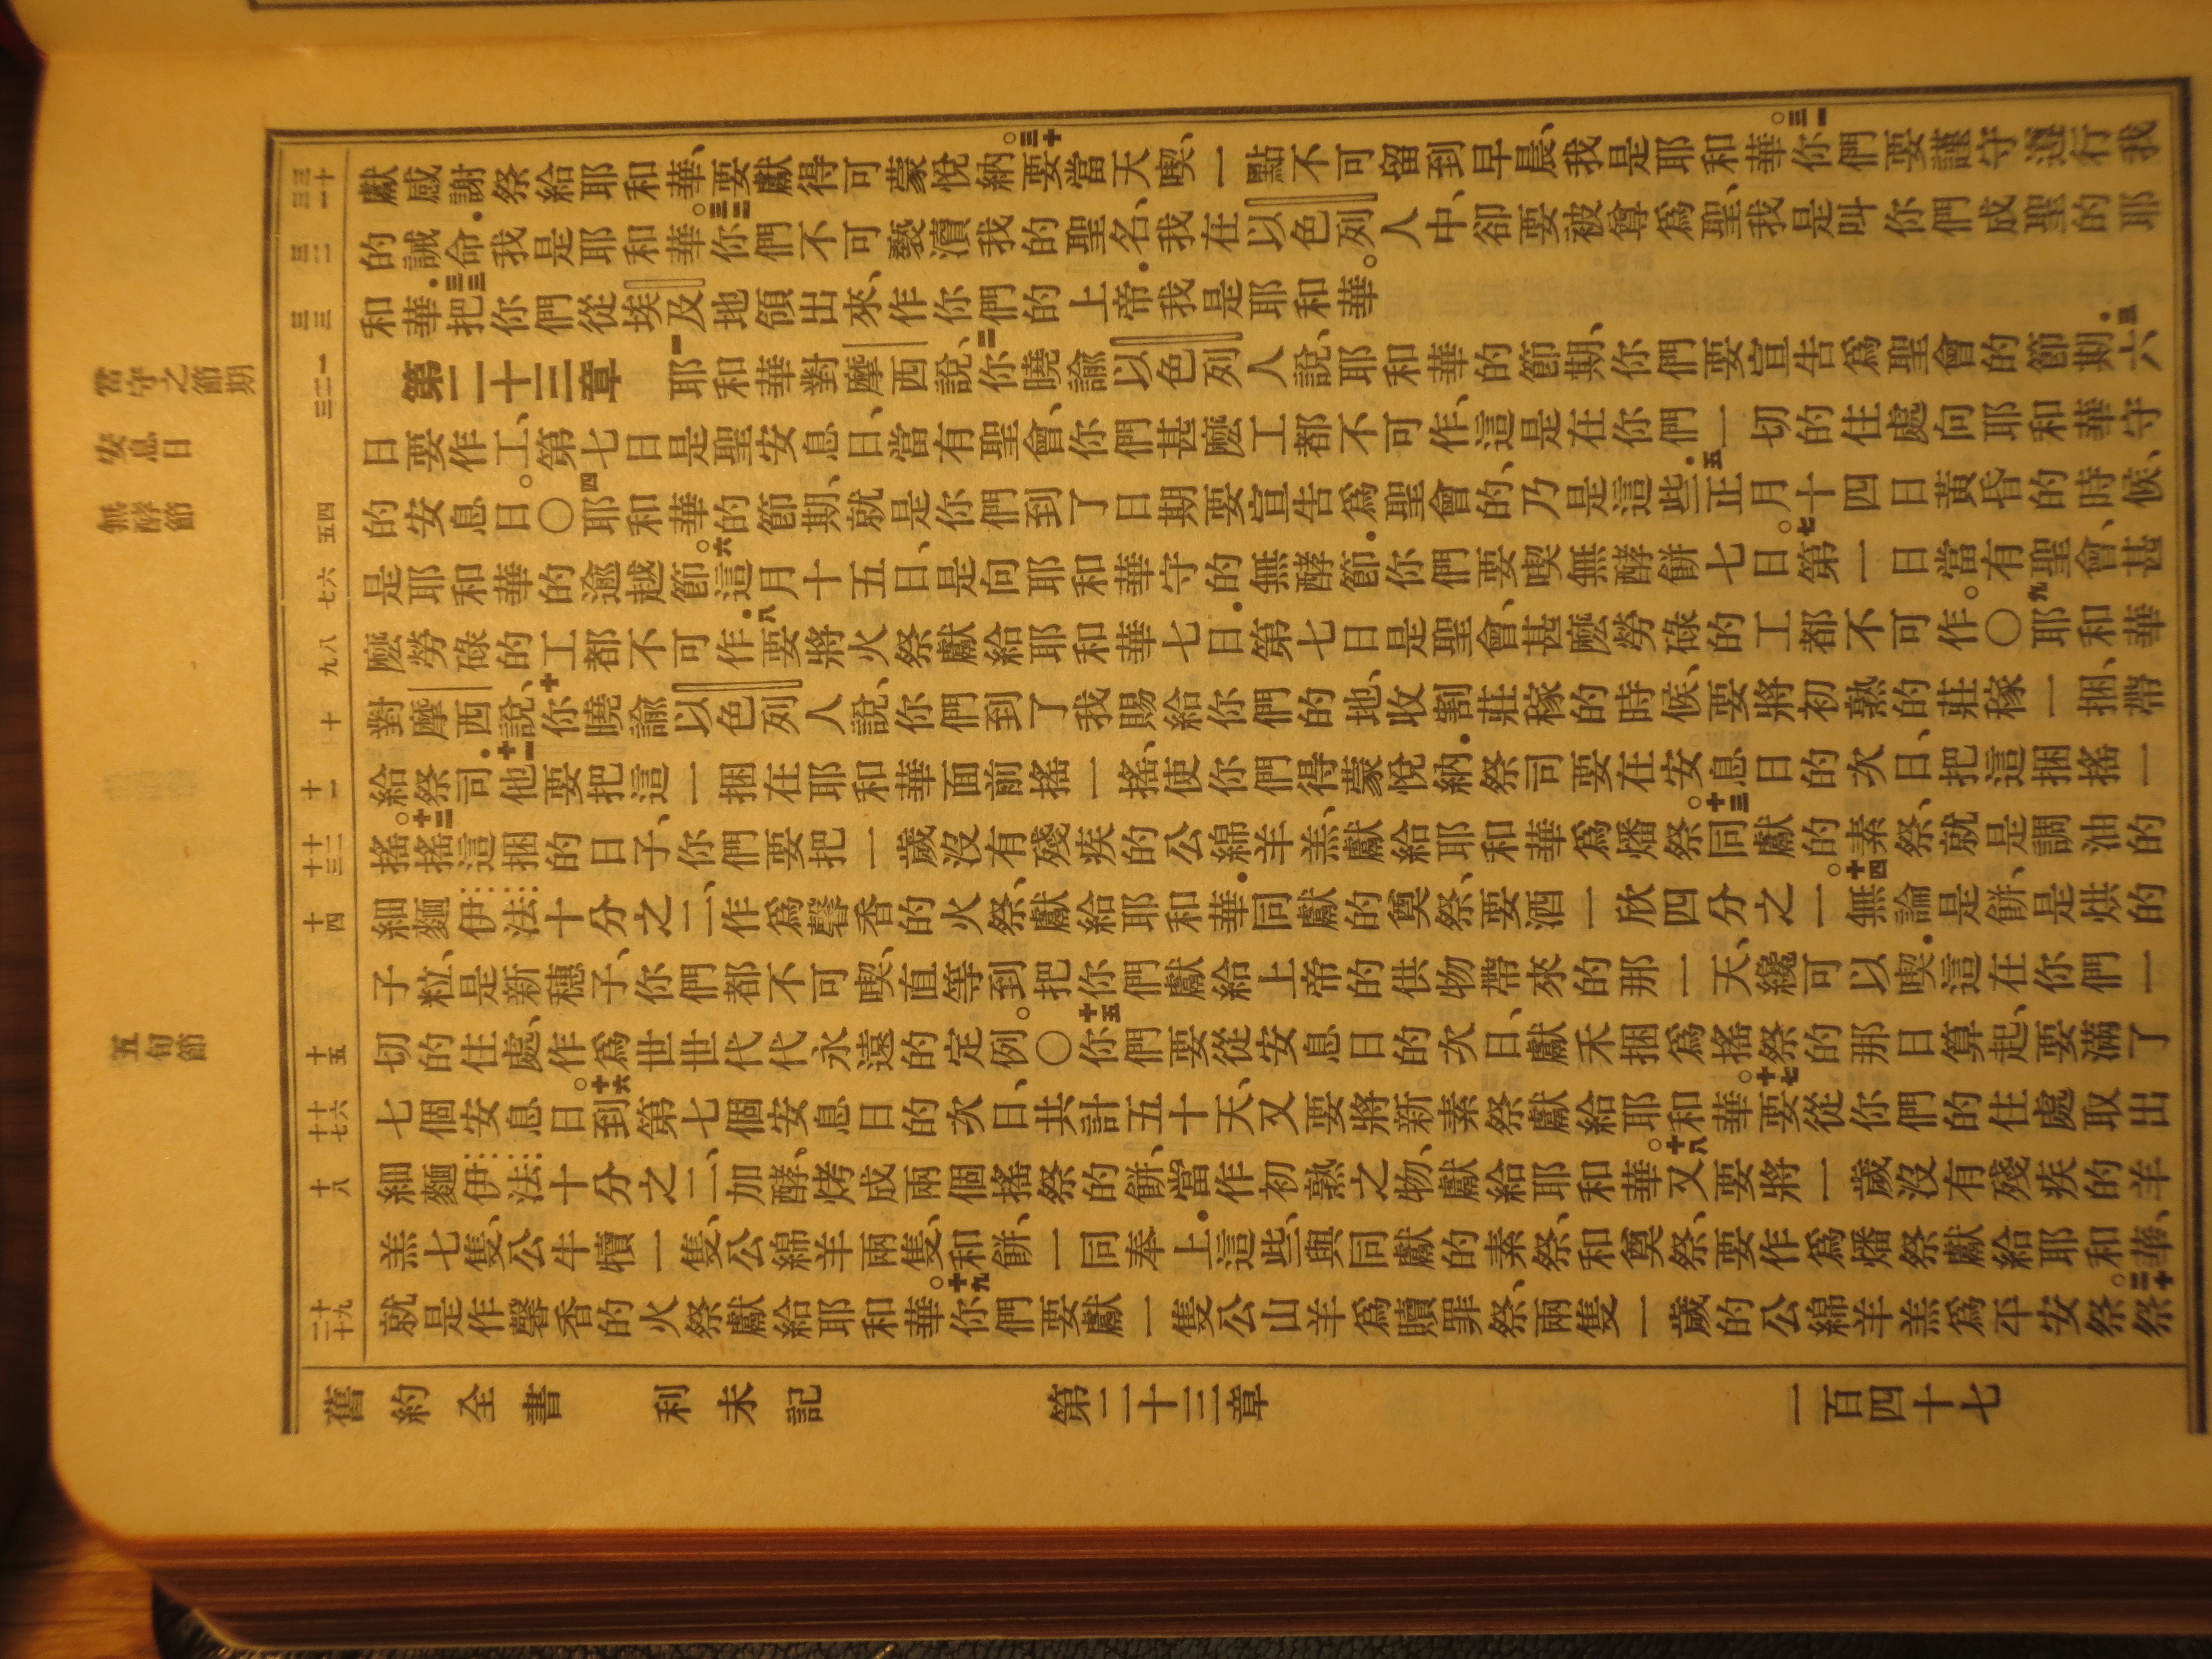 獻感謝祭給耶和華、要獻得可蒙悅納。三十要當天喫、一點不可留到早晨、我是耶和華。三一你們要謹守遵行我
的誡命.我是耶和華。三二你們不可褻瀆我的聖名、我在以色列人中、卻要被尊爲聖、我是叫你們成聖的耶
和華.三三把你們從埃及地領出來、作你們的上帝.我是耶和華。
第二十三章 一耶和華對摩西說、二你曉諭以色列人說、耶和華的節期、你們要宣告爲聖會的節期.三六
日要作工、第七日是聖安息日、當有聖會、你們甚麼工都不可作、這是在你們一切的住處向耶和華守
的安息日。〇四耶和華的節期、就是你們到了日期要宣告爲聖會的、乃是這些.五正月十四日黃昏的時候、
是耶和華的逾越節。六這月十五日、是向耶和華守的無酵節.你們要喫無酵餅七日。七第一日當有聖會、甚
麼勞碌的工都不可作.八要將火祭獻給耶和華七日.第七日是聖會、甚麼勞碌的工都不可作。〇九耶和華
對摩西說、十你曉諭以色列人說、你們到了我賜給你們的地、收割莊稼的時候、要將初熟的莊稼一捆、帶
給祭司.十一他要把這一捆在耶和華面前搖一搖、使你們得蒙悅納.祭司要在安息日的次日、把這捆搖一
搖。十二搖這捆的日子、你們要把一歲沒有殘疾的公綿羊羔、獻給耶和華爲燔祭。十三同獻的素祭、就是調油的
細麵伊法十分之二、作爲馨香的火祭、獻給耶和華.同獻的奠祭、要酒一欣四分之一。十四無論是餅、是烘的
子粒、是新穗子、你們都不可喫、直等到把你們獻給上帝的供物帶來的那一天、纔可以喫.這在你們一
切的住處、作爲世世代代永遠的定例。〇十五你們要從安息日的次日、獻禾捆爲搖祭的那日算起、要滿了
七個安息日。十六到第七個安息日的次日、共計五十天、又要將新素祭獻給耶和華。十七要從你們的住處取出
細麵伊法十分之二、加酵、烤成兩個搖祭的餅、當作初熟之物、獻給耶和華。十八又要將一歲沒有殘疾的羊
羔七隻、公牛犢一隻、公綿羊兩隻、和餅、一同奉上.這些、與同獻的素祭、和奠祭、要作爲燔祭獻給耶和華、
就是作馨香的火祭獻給耶和華。十九你們要獻一隻公山羊爲贖罪祭、兩隻一歲的公綿羊羔爲平安祭。二十祭
三十
三一
三二
三三
一
二
三
四
五
六
七
八
九
十
十一
十二
十三
十四
十五
十六
十七
十八
十九
二十
當守之節期
安息日
無酵節
五旬節
舊約全書 利未記 第二十三章 一百四十七